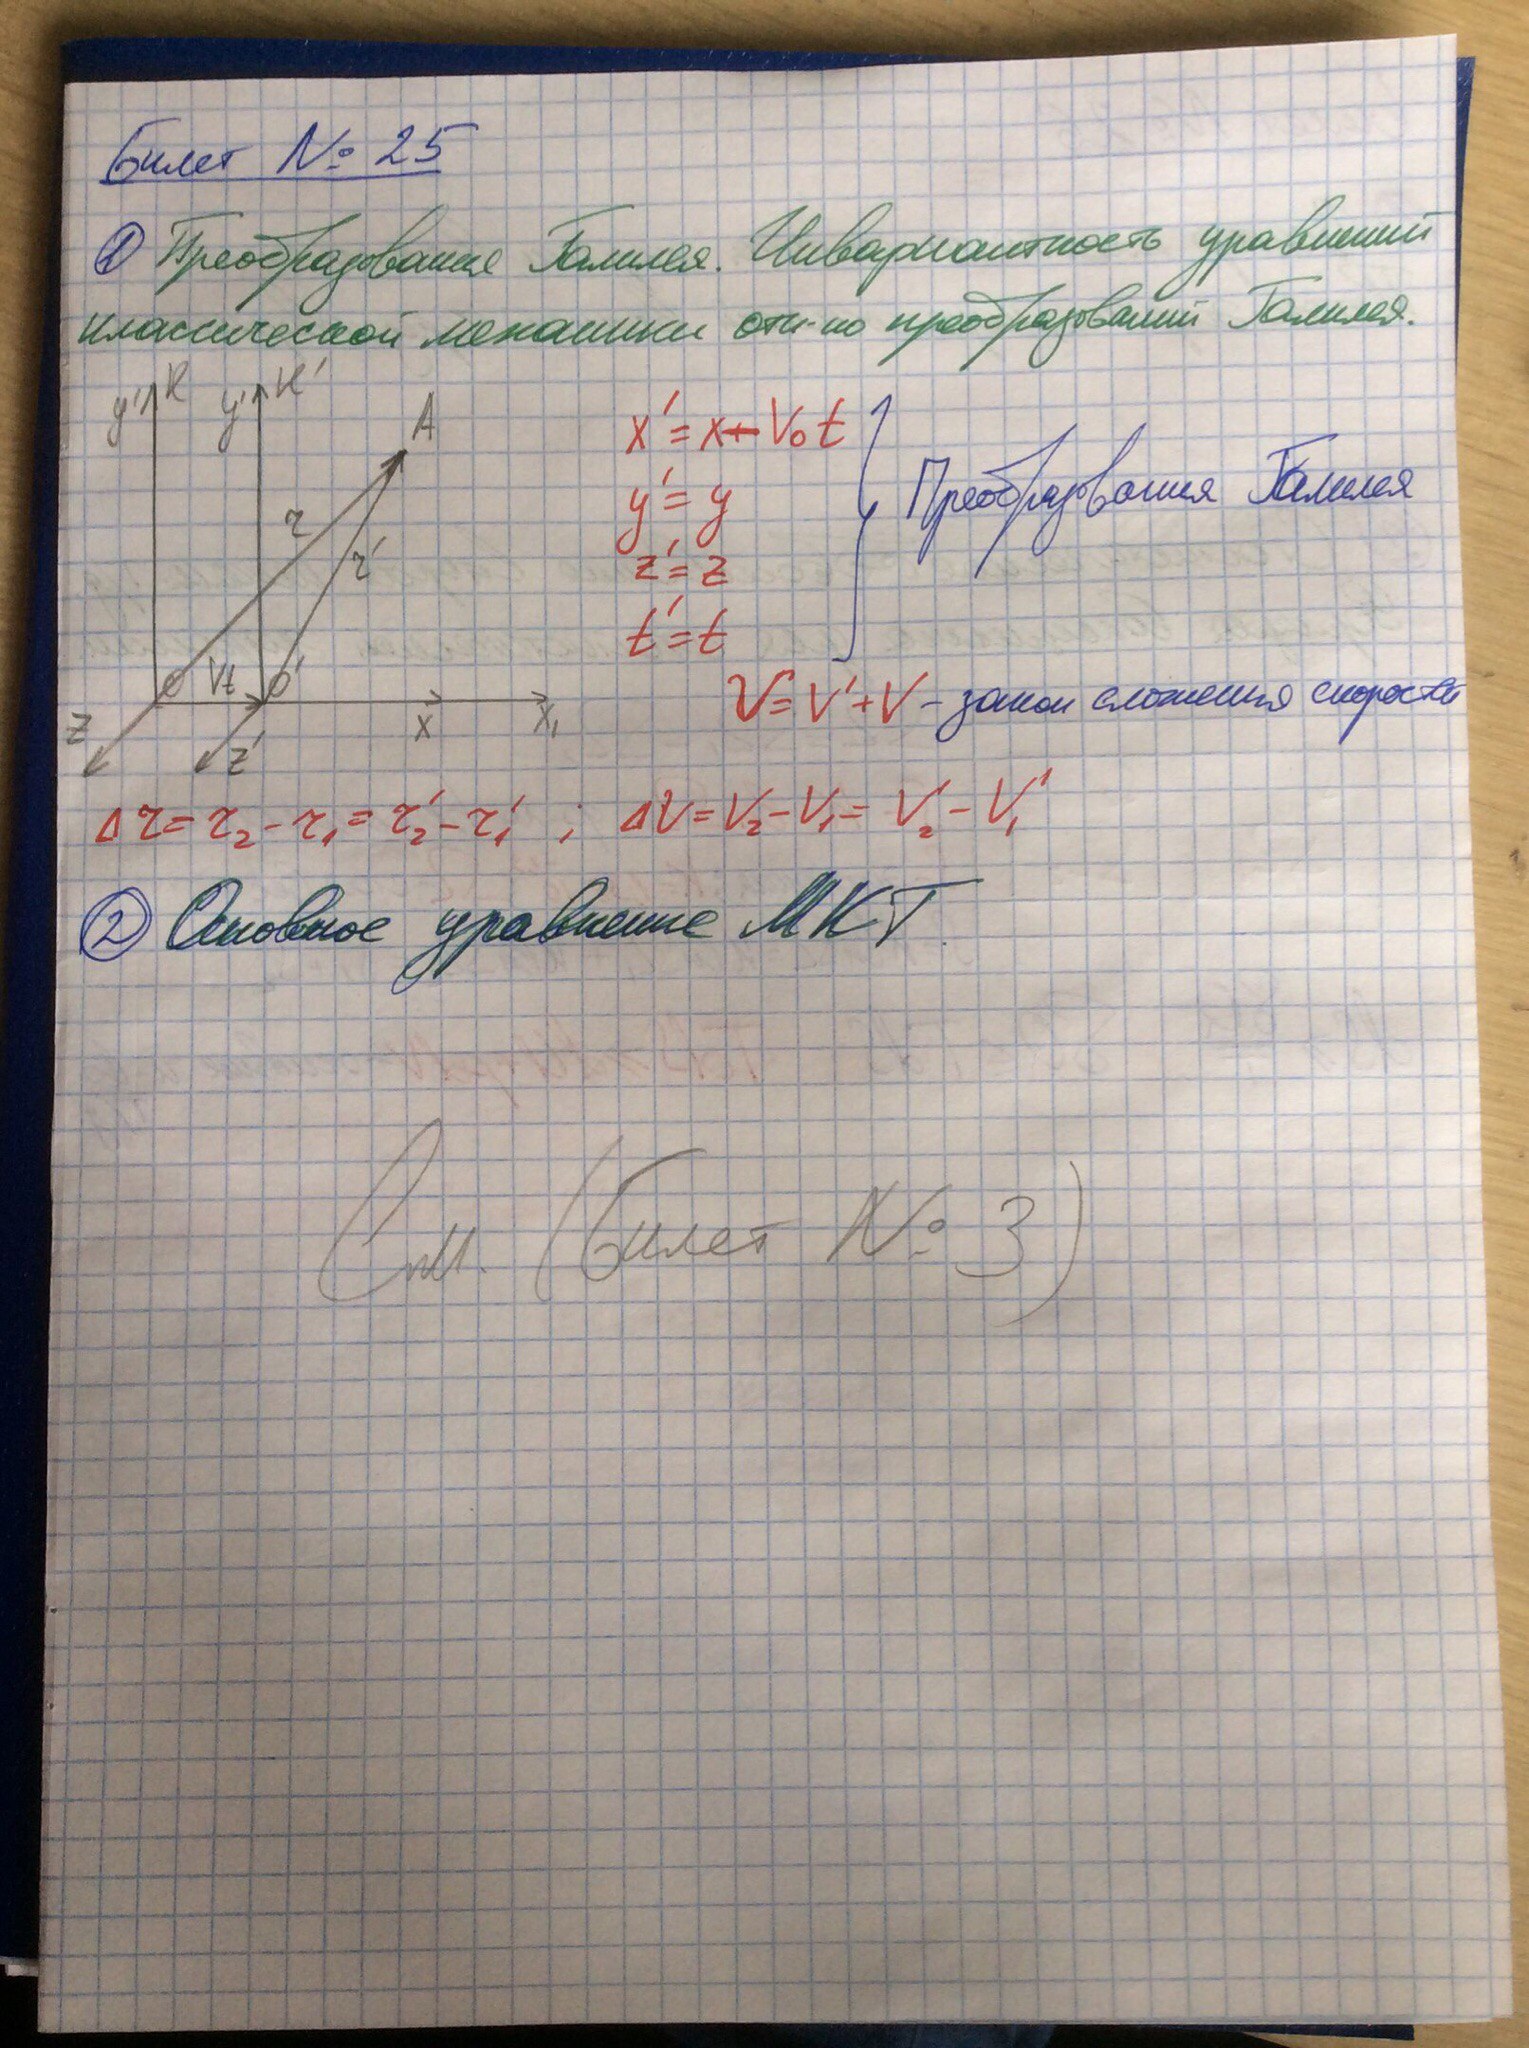 Билет № 25
① Преобразования Галилея. Инвариантность уравнений
классической механики отн-но преобразований Галилея.
y' K y' K' A
x' = x - V₀t
y' = y
z' = z
t' = t
Преобразования Галилея
r r'
O Vt O' x x₁
z z'
V = V' + V - закон сложения скорости
Δr = r₂ - r₁ = r₂' - r₁' ; ΔV = V₂ - V₁ = V₂' - V₁'
② Основное уравнение МКТ.
См. (Билет № 3)